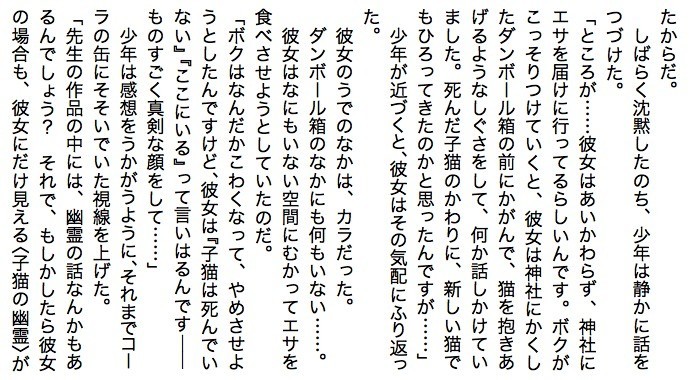 たからだ。
　しばらく沈黙したのち、少年は静かに話を
つづけた。
「ところが……彼女はあいかわらず、神社に
エサを届けに行ってるらしいんです。ボクが
こっそりつけていくと、彼女は神社にかくし
たダンボール箱の前にかがんで、猫を抱きあ
げるようなしぐさをして、何か話しかけてい
ました。死んだ子猫のかわりに、新しい猫で
もひろってきたのかと思ったんですが……」
　少年が近づくと、彼女はその気配にふり返っ
た。
　彼女のうでのなかは、カラだった。
　ダンボール箱のなかにも何もいない……。
　彼女はなにもいない空間にむかってエサを
食べさせようとしていたのだ。
「ボクはなんだかこわくなって、やめさせよ
うとしたんですけど、彼女は『子猫は死んでい
ない』『ここにいる』って言いはるんです――
ものすごく真剣な顔をして……」
　少年は感想をうかがうように、それまでコー
ラの缶にそそいでいた視線を上げた。
「先生の作品の中には、幽霊の話なんかもあ
るんでしょう？　それで、もしかしたら彼女
の場合も、彼女にだけ見える〈子猫の幽霊〉が